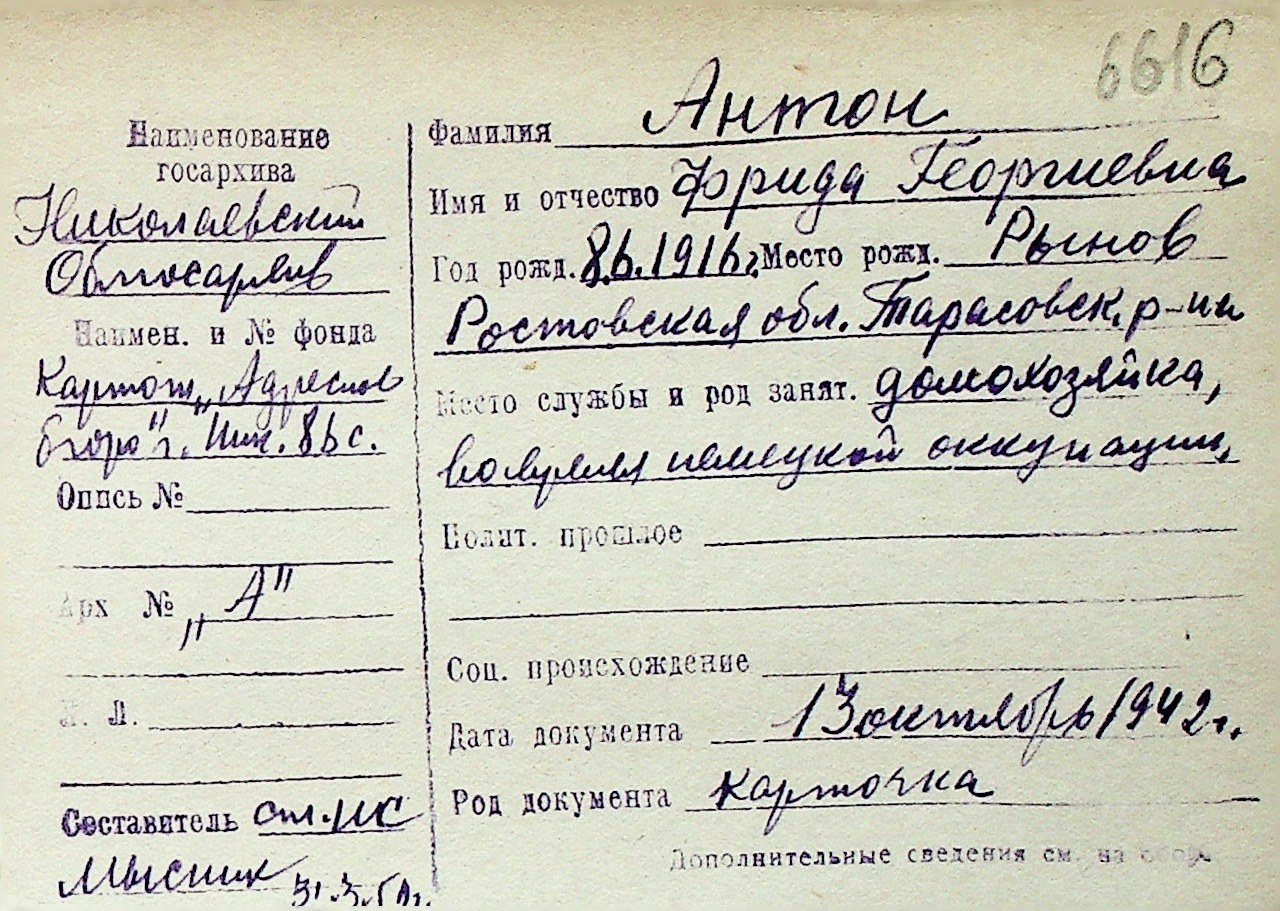 6616
Наименование
госархива
Николаевский
Облгосархив
Наимен. и № фонда
Картот. „Адресное
бюро" г. Ник.
Опись №
Арх № „А"
Л. Л.
Составитель ст. н/с
Мысник
Фамилия Антон
Имя и отчество Фрида Георгиевна
Год рожд. 8.6.1916 г. Место рожд. Рынов
Ростовская обл. Тарасовск. р-на
Место службы и род занят. домохозяйка,
во время немецкой оккупации,
Полит. прошлое
Соц. происхождение
Дата документа 13 октябрь 1942 г.
Род документа карточка
Дополнительные сведения см. на обор.